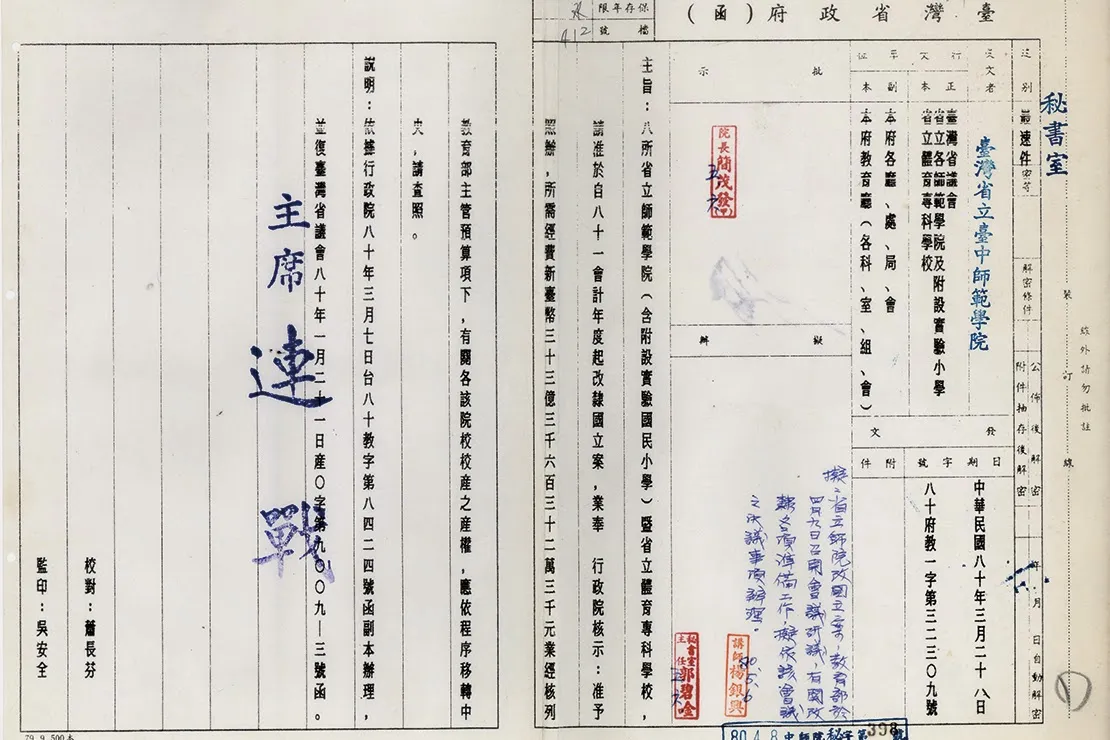 臺灣省政府（函）
保存年限
檔號
秘書室
裝訂線
線外請勿批註
速別
最速件
密等
解密條件
公佈後解密
附件抽存後解密
年 月 日自動解密
受文者
臺灣省立臺中師範學院
行文單位
正本
臺灣省議會
省立各師範學院及附設實驗小學
省立體育專科學校
副本
本府各廳、處、局、會
本府教育廳（各科、室、組、會）
發文
日期
中華民國八十年三月二十八日
字號
八十府教一字第三二三０九號
附件
批示
院長簡茂發
擬辦
擬：省立師院改國立案，教育部於
四月九日召開會議研議，有關改
隸各項準備工作，擬依該會議
之決議事項辦理。
講師楊銀興
秘書室主任郭碧唫
80.4.8 中師院秘字第398號
主旨：八所省立師範學院（含附設實驗國民小學）暨省立體育專科學校，
請准於自八十一會計年度起改隸國立案，業奉 行政院核示：准予
照辦，所需經費新臺幣三十三億三千六百三十二萬三千元業經核列
教育部主管預算項下，有關各該院校校產之產權，應依程序移轉中
央，請查照。
說明：依據行政院八十年三月七日台八十教字第八四二四號函副本辦理，
並復臺灣省議會八十年一月二十一日產０字第九００九—三號函。
主席 連戰
校對：蕭長芬
監印：吳安全
79.9.500本